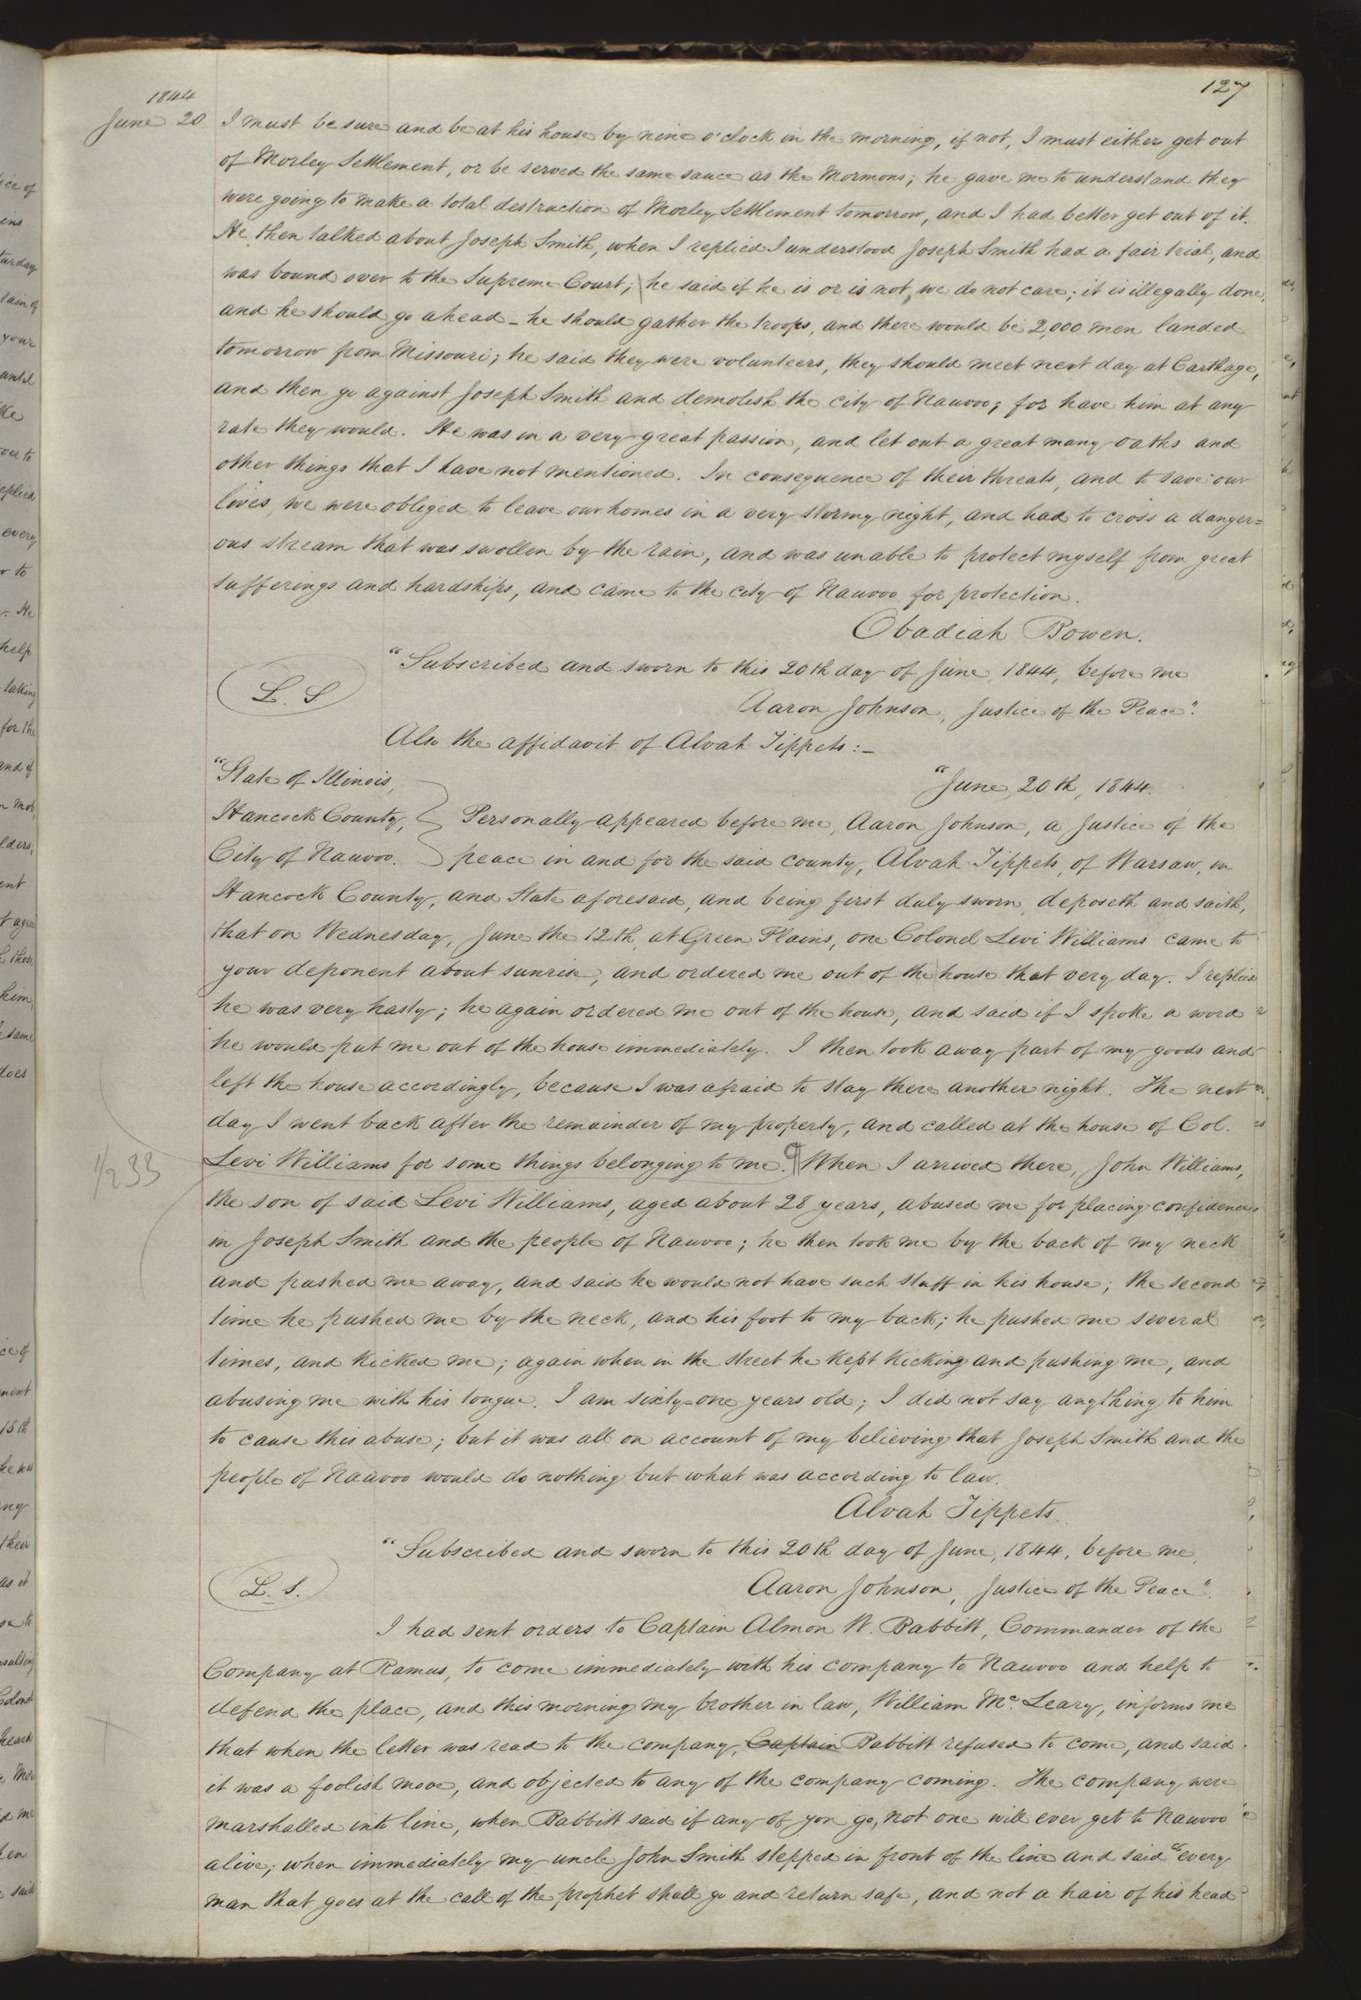 127
1844
June 20 I must be sure and be at his house by nine o'clock in the morning, if not, I must either get out
of Morley Settlement, or be served the same sauce as the Mormons; he gave me to understand they
were going to make a total destruction of Morley Settlement tomorrow, and I had better get out of it.
He then talked about Joseph Smith, when I replied I understood Joseph Smith had a fair trial, and
was bound over to the Supreme Court; he said if he is or is not, we do not care; it is illegally done,
and he should go ahead – he should gather the troops, and there would be 2,000 men landed
tomorrow from Missouri; he said they were volunteers, they should meet next day at Carthage,
and then go against Joseph Smith and demolish the city of Nauvoo; for have him at any
rate they would. He was in a very great passion, and let out a great many oaths and
other things that I have not mentioned. In consequence of their threats, and to save our
lives, we were obliged to leave our homes in a very stormy night, and had to cross a danger=
ous stream that was swollen by the rain, and was unable to protect myself from great
sufferings and hardships, and came to the city of Nauvoo for protection.
Obadiah Bowen.
"Subscribed and sworn to this 20th day of June, 1844, before me
L. S
Aaron Johnson, Justice of the Peace".
Also the affidavit of Alvah Tippets:–
"State of Illinois,
"June, 20th, 1844.
Hancock County, Personally appeared before me, Aaron Johnson, a Justice of the
City of Nauvoo. peace in and for the said county, Alvah Tippets, of Warsaw, in
Hancock County, and State aforesaid, and being first duly sworn, deposeth and saith,
that on Wednesday, June the 12th, at Green Plains, one Colonel Levi Williams came to
your deponent about sunrise, and ordered me out of the house that very day. I replied
he was very hasty; he again ordered me out of the house, and said if I spoke a word
he would put me out of the house immediately. I then took away part of my goods and
left the house accordingly, because I was afraid to stay there another night. The next
day I went back after the remainder of my property, and called at the house of Col.
Levi Williams for some things belonging to me. ¶ When I arrived there, John Williams,
1/233
the son of said Levi Williams, aged about 28 years, abused me for placing confidence
in Joseph Smith and the people of Nauvoo; he then took me by the back of my neck
and pushed me away, and said he would not have such stuff in his house; the second
time he pushed me by the neck, and his foot to my back; he pushed me several
times, and kicked me; again when in the street he kept kicking and pushing me, and
abusing me with his tongue. I am sixty=one years old; I did not say anything to him
to cause this abuse; but it was all on account of my believing that Joseph Smith and the
people of Nauvoo would do nothing but what was according to law.
Alvah Tippets.
"Subscribed and sworn to this 20th day of June, 1844, before me,
L. S.
Aaron Johnson, Justice of the Peace".
I had sent orders to Captain Almon W. Babbitt, Commander of the
Company at Ramus, to come immediately with his company to Nauvoo and help to
defend the place, and this morning my brother in law, William Mc. Leary, informs me
that when the letter was read to the company, Captain Babbitt refused to come, and said
it was a foolish move, and objected to any of the company coming. The company were
marshalled into line, when Babbitt said if any of you go, not one will ever get to Nauvoo
alive; when immediately my uncle John Smith stepped in front of the line and said "every
man that goes at the call of the prophet shall go and return safe, and not a hair of his head